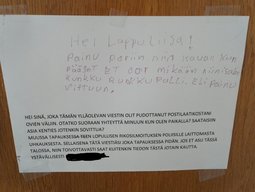 Hei Lappuliisa!
Painu niin kauas kun
pääset ET OOT mikään niin
runkku RUNKKU PULLI. Eli PAINU
VITTUUN.
HEI SINÄ, JOKA TÄMÄN YLLÄOLEVAN VIESTIN OLIT PUDOTTANUT POSTILAATIKOSTANI
OVIEN VÄLIIN. OTATKO SUORAAN YHTEYTTÄ MINUUN KUN OLEN PAIKALLA? SAATAISIIN
ASIA KENTIES JOTENKIN SOVITTUA?
MUUSSA TAPAUKSESSA TEEN LOPULLISEN RIKOSILMOITUKSEN POLIISILLE LAITTOMASTA
UHKAUKSESTA. SELLAISENA TÄTÄ VIESTIÄ JOKA TAPAUKSESSA PIDÄN. JOS ET ASU TÄSSÄ
TALOSSA, NIIN TOIVOTTAVASTI SAAT KUITENKIN TIEDON TÄSTÄ JOTAIN KAUTTA.
YSTÄVÄLLISESTI